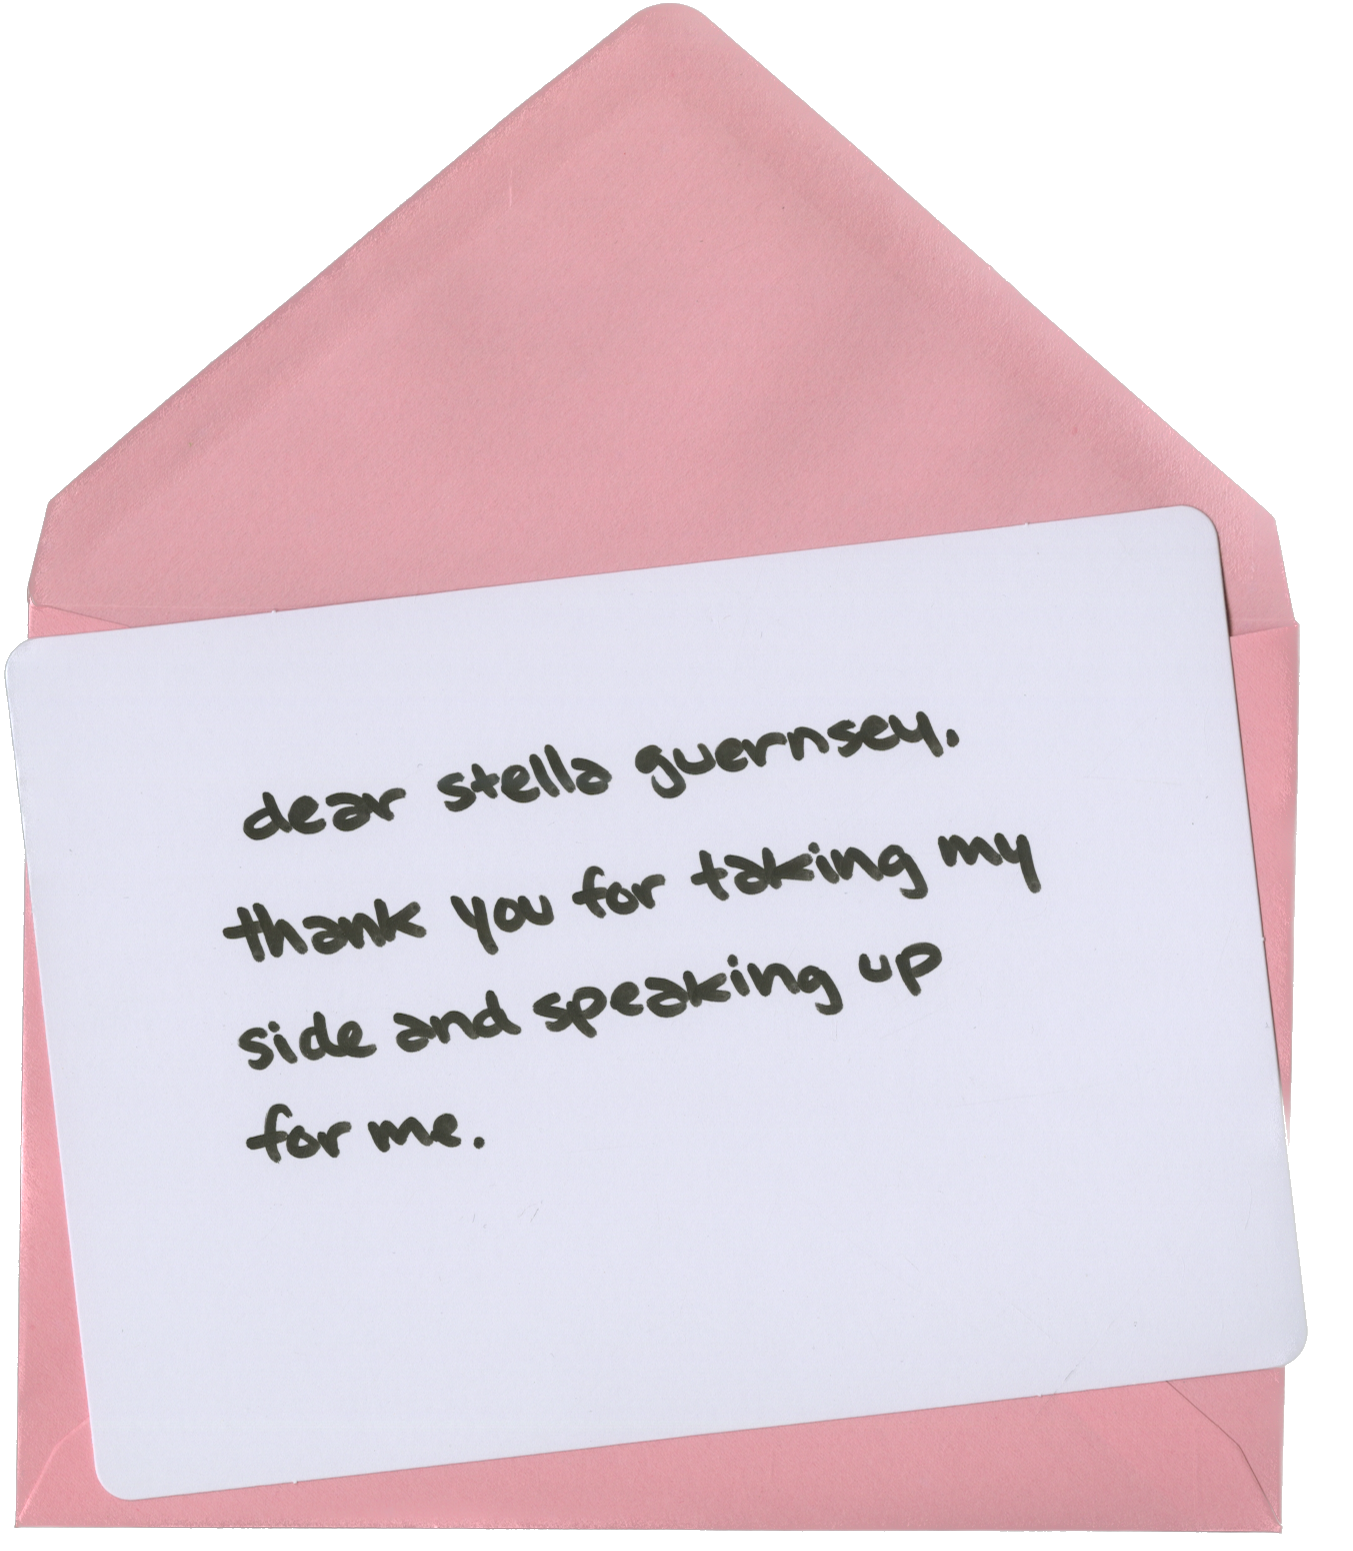 dear stella guernsey.
thank you for taking my
side and speaking up
for me.